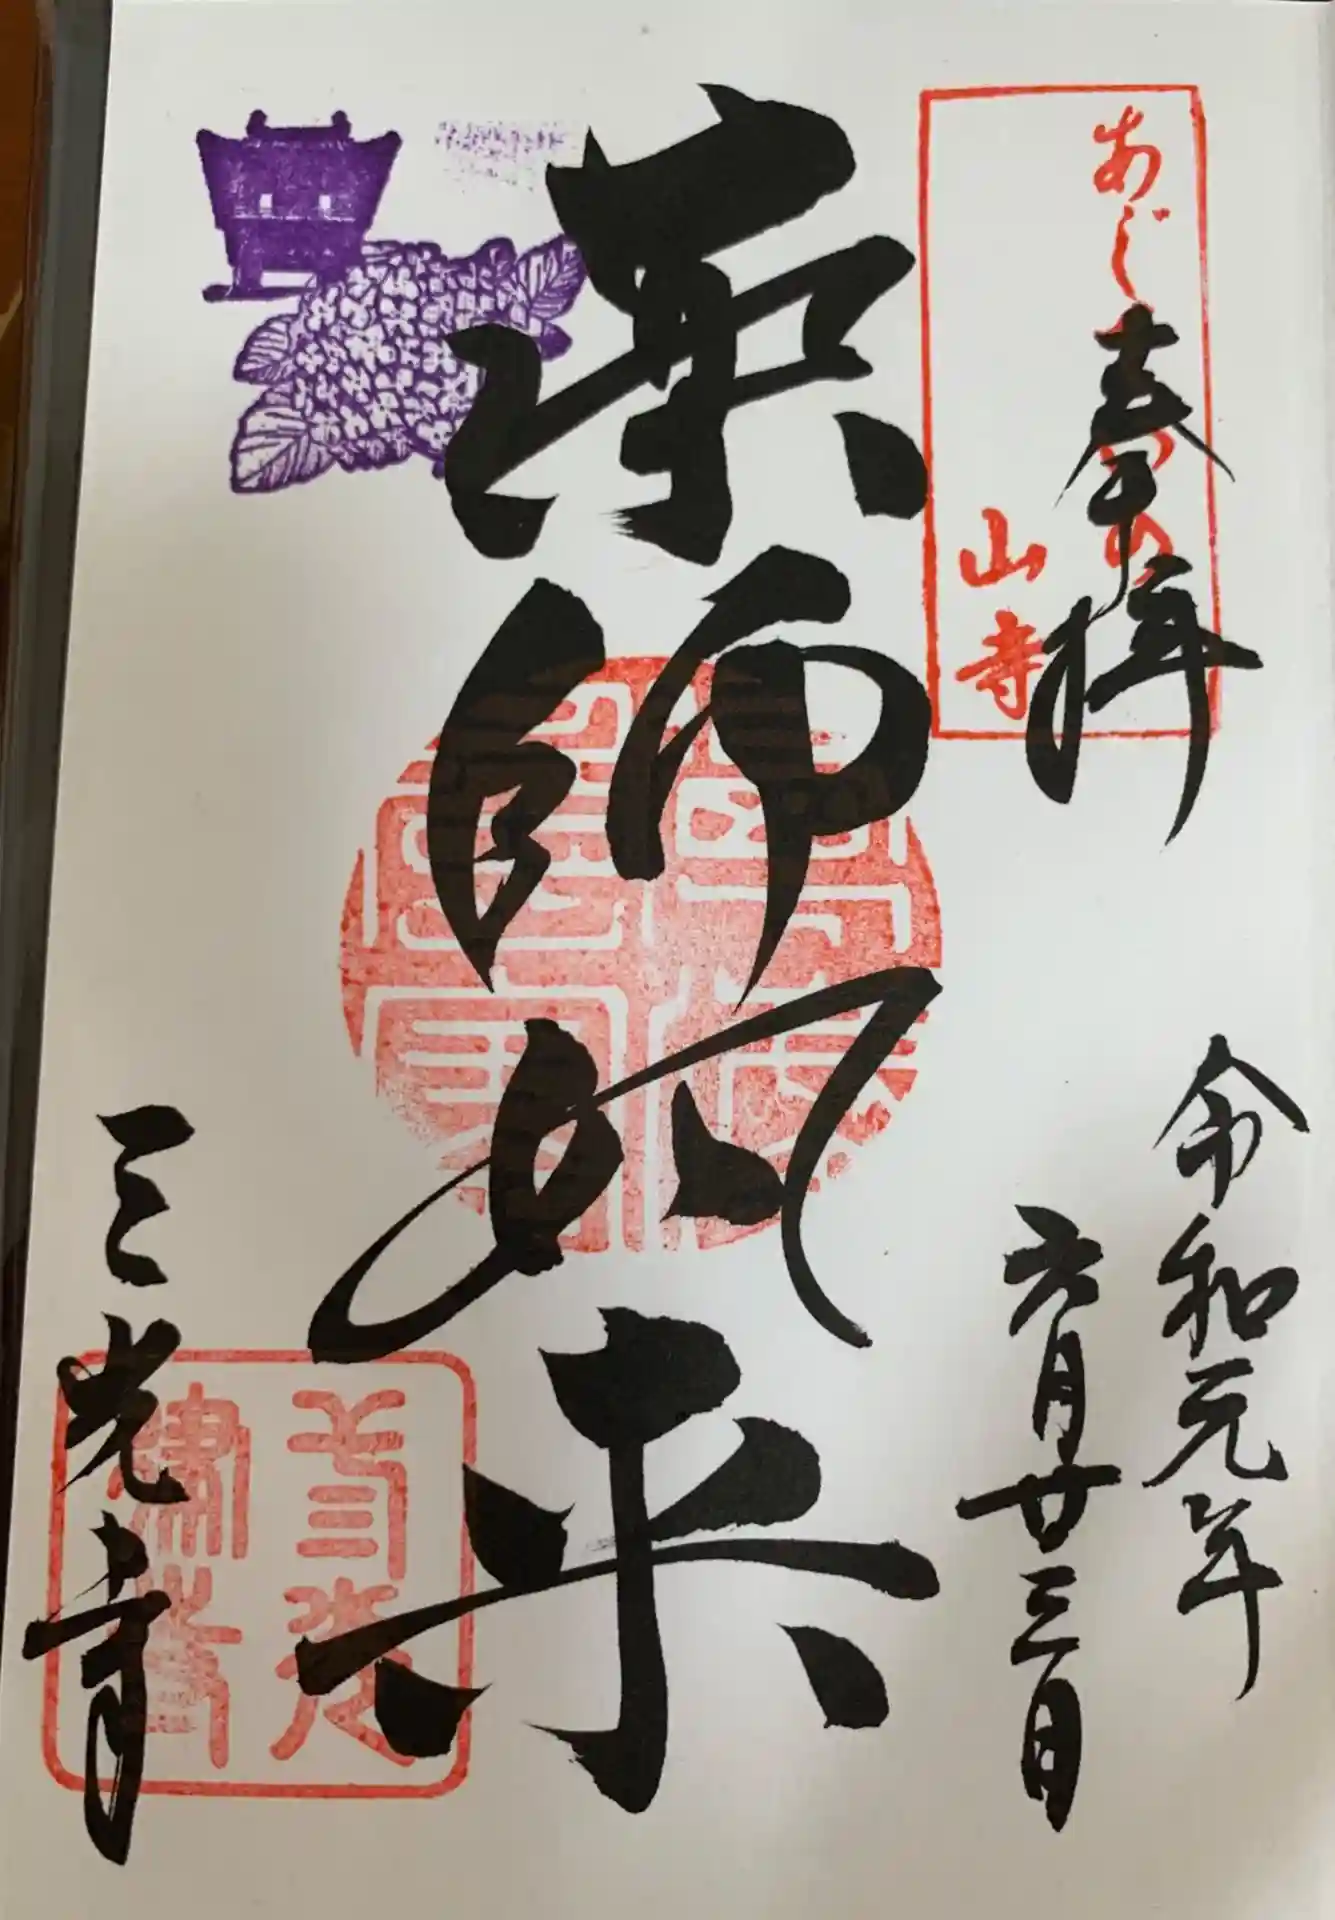 あじさいの
山寺
奉拝
令和元年
六月廿三日
薬師如来
三光寺